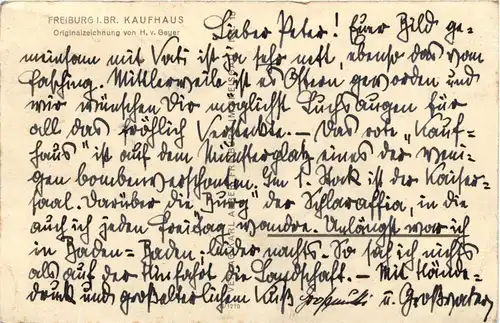 FREIBURG I. BR. KAUFHAUS
Originalzeichnung von H. v. Geyer
Lieber Peter! Euer Bild ge-
meinsam mit Vati ist ja sehr nett, ebenso das vom
Fasching. Mittlerweile ist es Ostern geworden und
wir wünschen Dir möglichst Luchsaugen für
all das fröhlich Versteckte. – Das rote "Kauf-
haus" ist auf dem Münsterplatz eines der weni-
gen bombenverschonten. Im 1. Stock ist der Kaiser-
saal. Darüber die "Burg" der Schlaraffia, in die
auch ich jeden Freitag wandre. Unlängst war ich
in Baden-Baden, leider nachts. So sah ich nichts
als auf der Hinfahrt die Landschaft. – Mit Hände-
druck und großelterlichem Kuß Großmutti u. Großvater